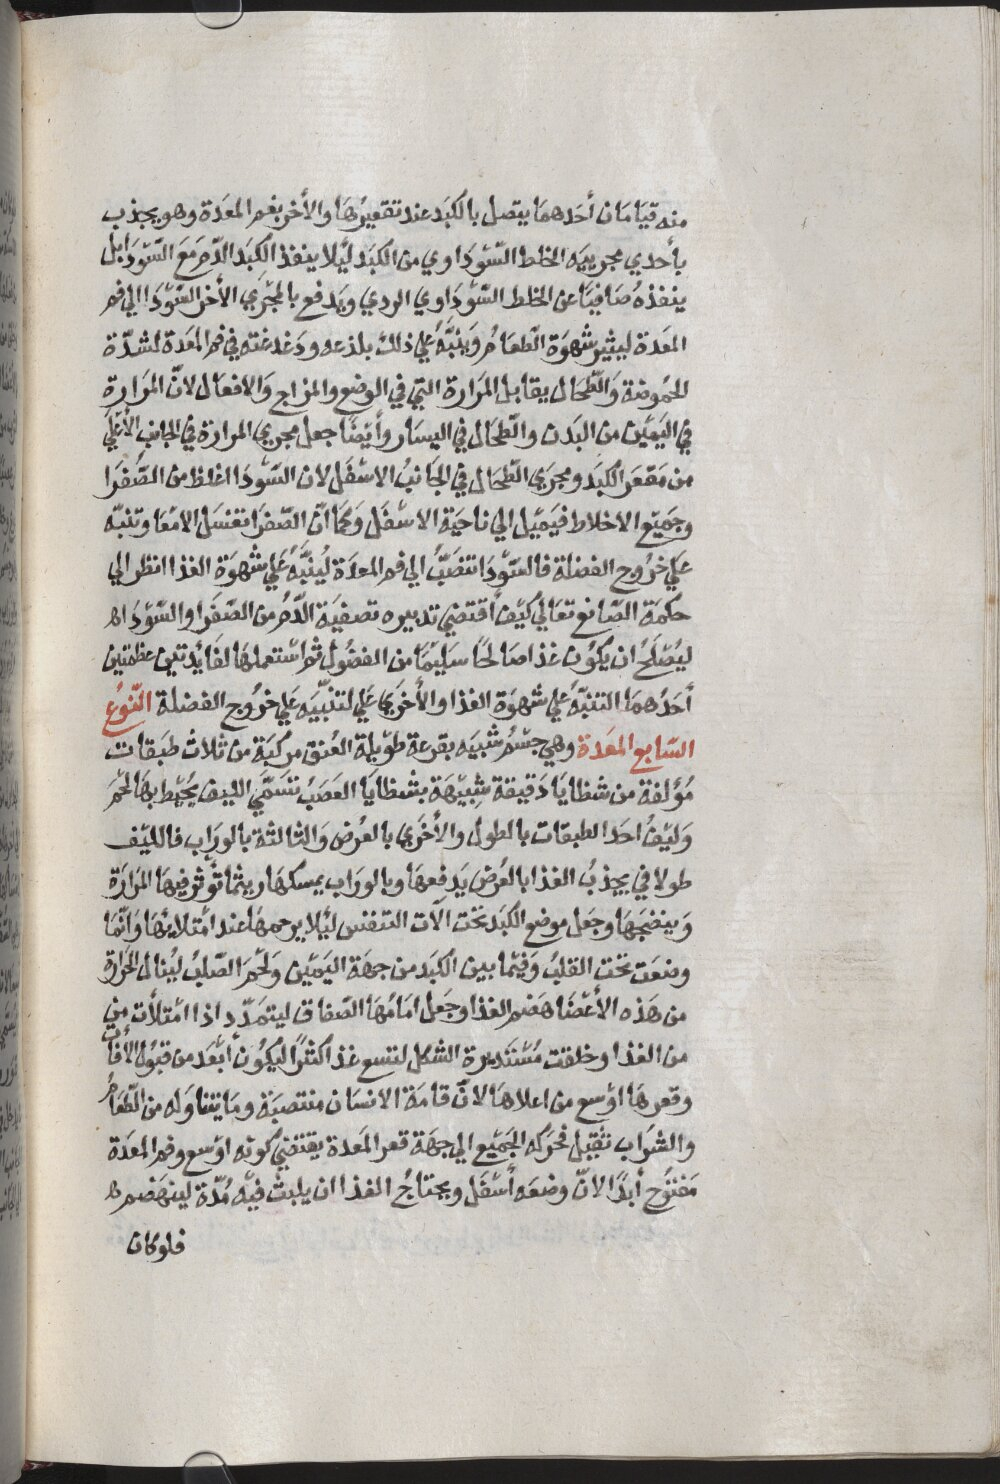 منه قيامان أحدهما يتصل بالكبد عند تقعيرها والأخر بغم المعدة وهو يجذب
بأحدي مجرييه الخلط السّوداوي من الكبد ليلا ينفذ الكبد الدّم مع السّودا بل
ينفذه صافيًا عن الخلط السّوداوي الردي ويدفع بالمجري الأخر السّودا الي فم
المعدة ليثير شهوة الطّعام وينبّه علي ذلك بلذعه ودغدغته في فم المعدة لشدّة
الحموضة والطّحال يقابل المرارة التي في الوضع والمزاج والافعال لانّ المرارة
في اليمين من البدن والطّحال في اليسار وأيضًا جعل مجري المرارة في الجانب الأعلي
من مقعر الكبد ومجري الطّحال في الجانب الاسفل لان السّودا اغلظ من الصّفرا
وجميع الاخلاط فيميل الي ناحية الاسفل وكما انّ الصّفرا تغسل الامعا وتنبّه
علي خروج الفضلة فالسّودا تنصبّ الي فم المعدة لينبّه علي شهوة الغذا انظر الي
حكمة الصّانع تعالي كيف أقتضي تدبيره تصفية الدّم من الصّفرا والسّودا
ليصلح ان يكون غذا صالحًا سليمًا من الفضول ثم استعملها لفايدتين عظمتين
أحدهما التنبّه علي شهوة الغذا والأخري علي لتنبّيه علي خروج الفضلة النّوع
السّابع المعدة وهي جسم شبيه بقرعة طويلة العنق مركبة من ثلاث طبقات
مؤلفة من شظايا دقيقة شبيهة بشظايا العصب تسمّي الليف يحيط بها لحم
وليف احد الطبقات بالطول والأخري بالعرض والثالثة بالوراب فالليف
طولا في يجذب الغذا بالعرض يدفعها وبالوراب يمسكها ريثما تؤثر فيها المرارة
وينضجها وجعل موضع الكبد تحت آلات التنفس ليلا يرحمها عند امتلايها وانّما
وضعت تحت القلب وفيما بين الكبد من جهة اليمين ولحم الصّلب لينال الحرارة
من هذه الأعضا هضم الغذا وجعل امامها الصّفاق ليتمدّد اذا امتلأت من
من الغذا وخلقت مستديرة الشكل لتسع غذ اكثرًا ليكون أبعد من قبول الأفات
وقعرها اوسع من اعلاها لانّ قامة الانسان منتصبة وما يتناوله من الطّعام
والشراب ثقيل فحركه الجميع الي جهة قعر المعدة يقتضي كونه اوسع وفم المعدة
مفتوح أبدًا لانّ وضعه أسفل ويحتاج الغذا ان يلبث فيه مدّة لينهضم
فلوكان